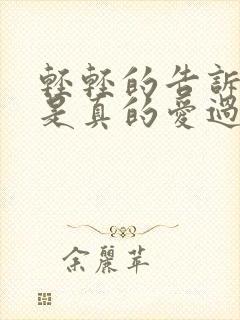 輕輕的告訴
是真的愛過
余麗苹